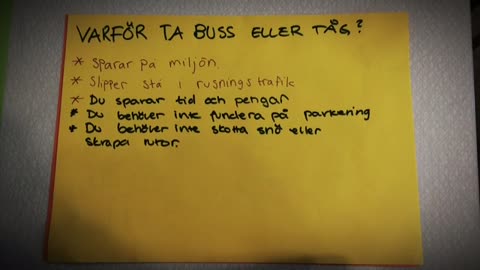 VARFÖR TA BUSS ELLER TÅG?
* Sparar på miljön.
* Slipper stå i rusningstrafik
* Du sparar tid och pengar
* Du behöver inte fundera på parkering
* Du behöver inte skotta snö eller
skrapa rutor.